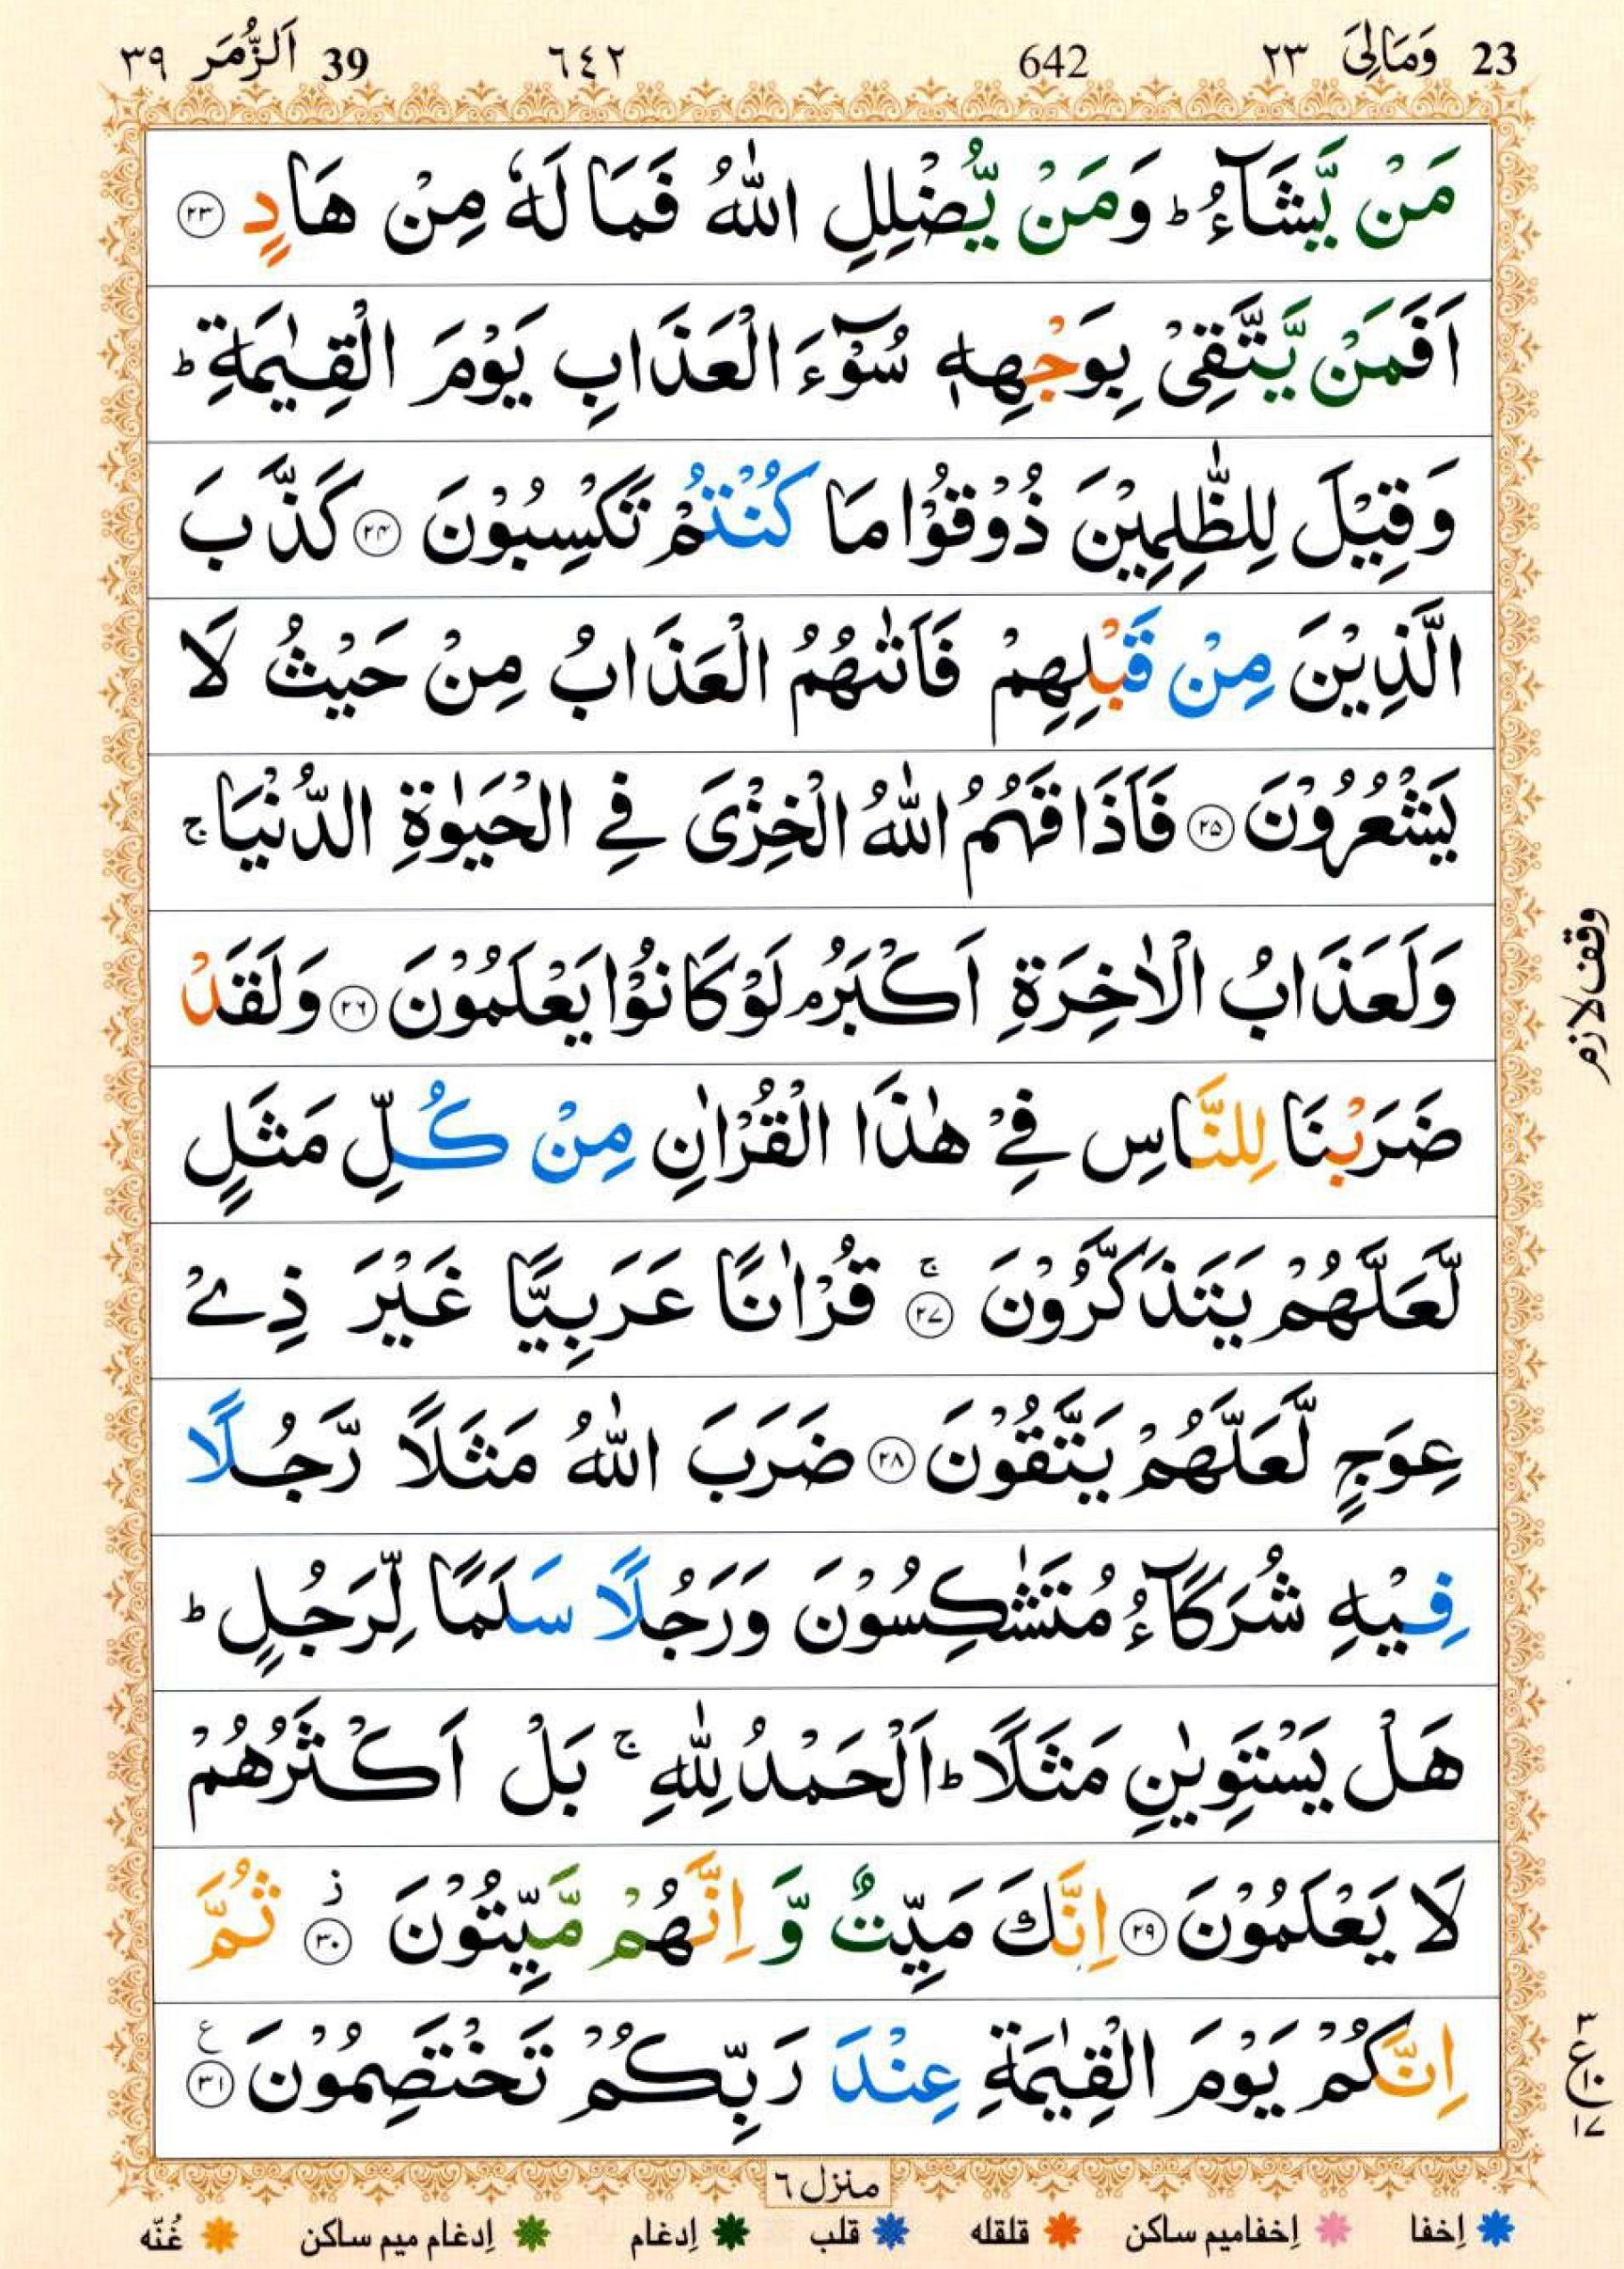 23 وَمَالِیَ ٢٣ 642 ٦٤٢ 39 اَلزُّمَر ٣٩
مَنْ يَّشَآءُ ؕ وَمَنْ يُّضْلِلِ اللّٰهُ فَمَا لَهٗ مِنْ هَادٍ ۝۲۳
اَفَمَنْ يَّتَّقِىْ بِوَجْهِهٖ سُوْٓءَ الْعَذَابِ يَوْمَ الْقِيٰمَةِ ؕ
وَقِيْلَ لِلظّٰلِمِيْنَ ذُوْقُوْا مَا كُنْتُمْ تَكْسِبُوْنَ ۝۲۴ كَذَّبَ
الَّذِيْنَ مِنْ قَبْلِهِمْ فَاَتٰٮهُمُ الْعَذَابُ مِنْ حَيْثُ لَا
يَشْعُرُوْنَ ۝۲۵ فَاَذَاقَهُمُ اللّٰهُ الْخِزْىَ فِى الْحَيٰوةِ الدُّنْيَا ۚ
وَلَعَذَابُ الْاٰخِرَةِ اَكْبَرُ ۘ لَوْ كَانُوْا يَعْلَمُوْنَ ۝۲۶ وَلَقَدْ
وقف لازم
ضَرَبْنَا لِلنَّاسِ فِىْ هٰذَا الْقُرْاٰنِ مِنْ كُلِّ مَثَلٍ
لَّعَلَّهُمْ يَتَذَكَّرُوْنَ ۚ ۝۲۷ قُرْاٰنًا عَرَبِيًّا غَيْرَ ذِىْ
عِوَجٍ لَّعَلَّهُمْ يَتَّقُوْنَ ۝۲۸ ضَرَبَ اللّٰهُ مَثَلًا رَّجُلًا
فِيْهِ شُرَكَآءُ مُتَشٰكِسُوْنَ وَرَجُلًا سَلَمًا لِّرَجُلٍ ؕ
هَلْ يَسْتَوِيٰنِ مَثَلًا ؕ اَلْحَمْدُ لِلّٰهِ ۚ بَلْ اَكْثَرُهُمْ
لَا يَعْلَمُوْنَ ۝۲۹ اِنَّكَ مَيِّتٌ وَّاِنَّهُمْ مَّيِّتُوْنَ ز ۝۳۰ ثُمَّ
اِنَّكُمْ يَوْمَ الْقِيٰمَةِ عِنْدَ رَبِّكُمْ تَخْتَصِمُوْنَ ع ۝۳۱
٣ ع ١٠ ١٧
منزل ٦
اِخفا اِخفامیم ساکن قلقله قلب اِدغام اِدغام میم ساکن غُنّه